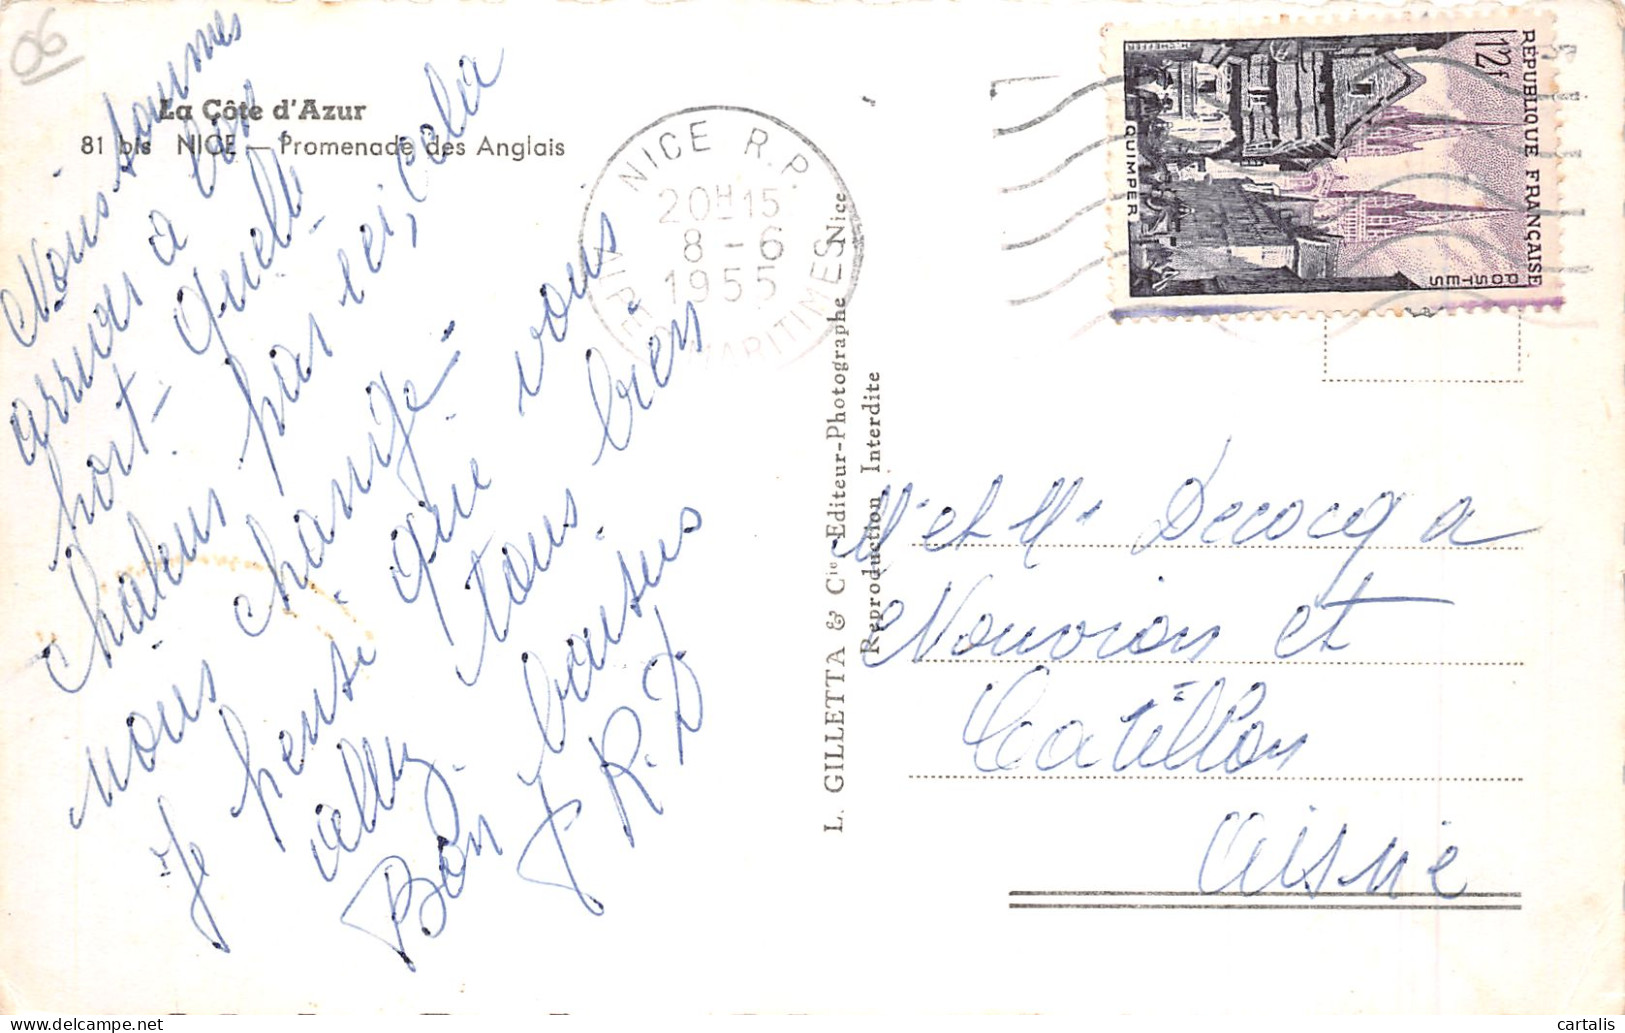 06
La Côte d'Azur
81 bis NICE — Promenade des Anglais
Nous sommes
arrivés à bon
port - Quelle
chaleur par ici, cela
nous change -
Je pense que vous
allez tous bien
Bons baisers
R.D
NICE R.P.
20H15
8 - 6
1955
ALPES MARITIMES
L. GILLETTA & Cie Editeur-Photographe Nice
Reproduction Interdite
REPUBLIQUE FRANÇAISE
12f
POSTES
QUIMPER
H. CHEFFER
Mr et Me Decocq à
Nouvion et
Catillon
Aisne
cartalis